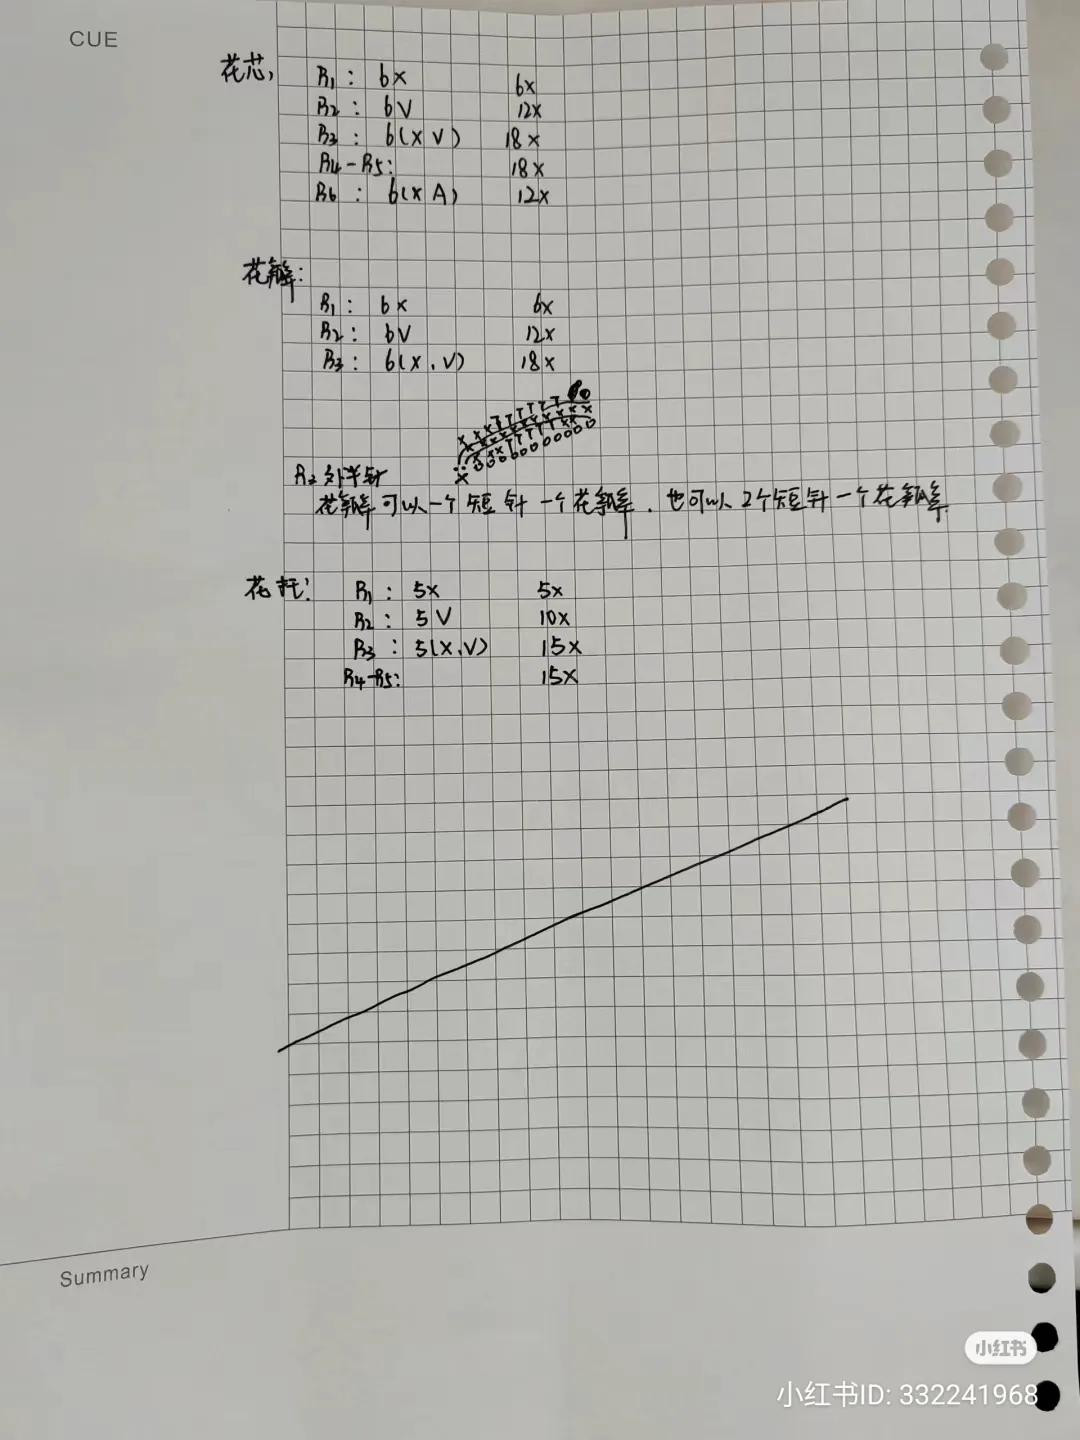 CUE
花芯,
R1: 6x 6x
R2: 6V 12x
R3: 6(x V) 18x
R4-R5: 18x
R6: 6(x A) 12x
花瓣:
R1: 6x 6x
R2: 6V 12x
R3: 6(x,V) 18x
R2外半针
花瓣可以一个短针一个花瓣.也可以2个短针一个花瓣.
花托:
R1: 5x 5x
R2: 5V 10x
R3: 5(x,V) 15x
R4-R5: 15x
Summary
小红书
小红书ID: 332241968